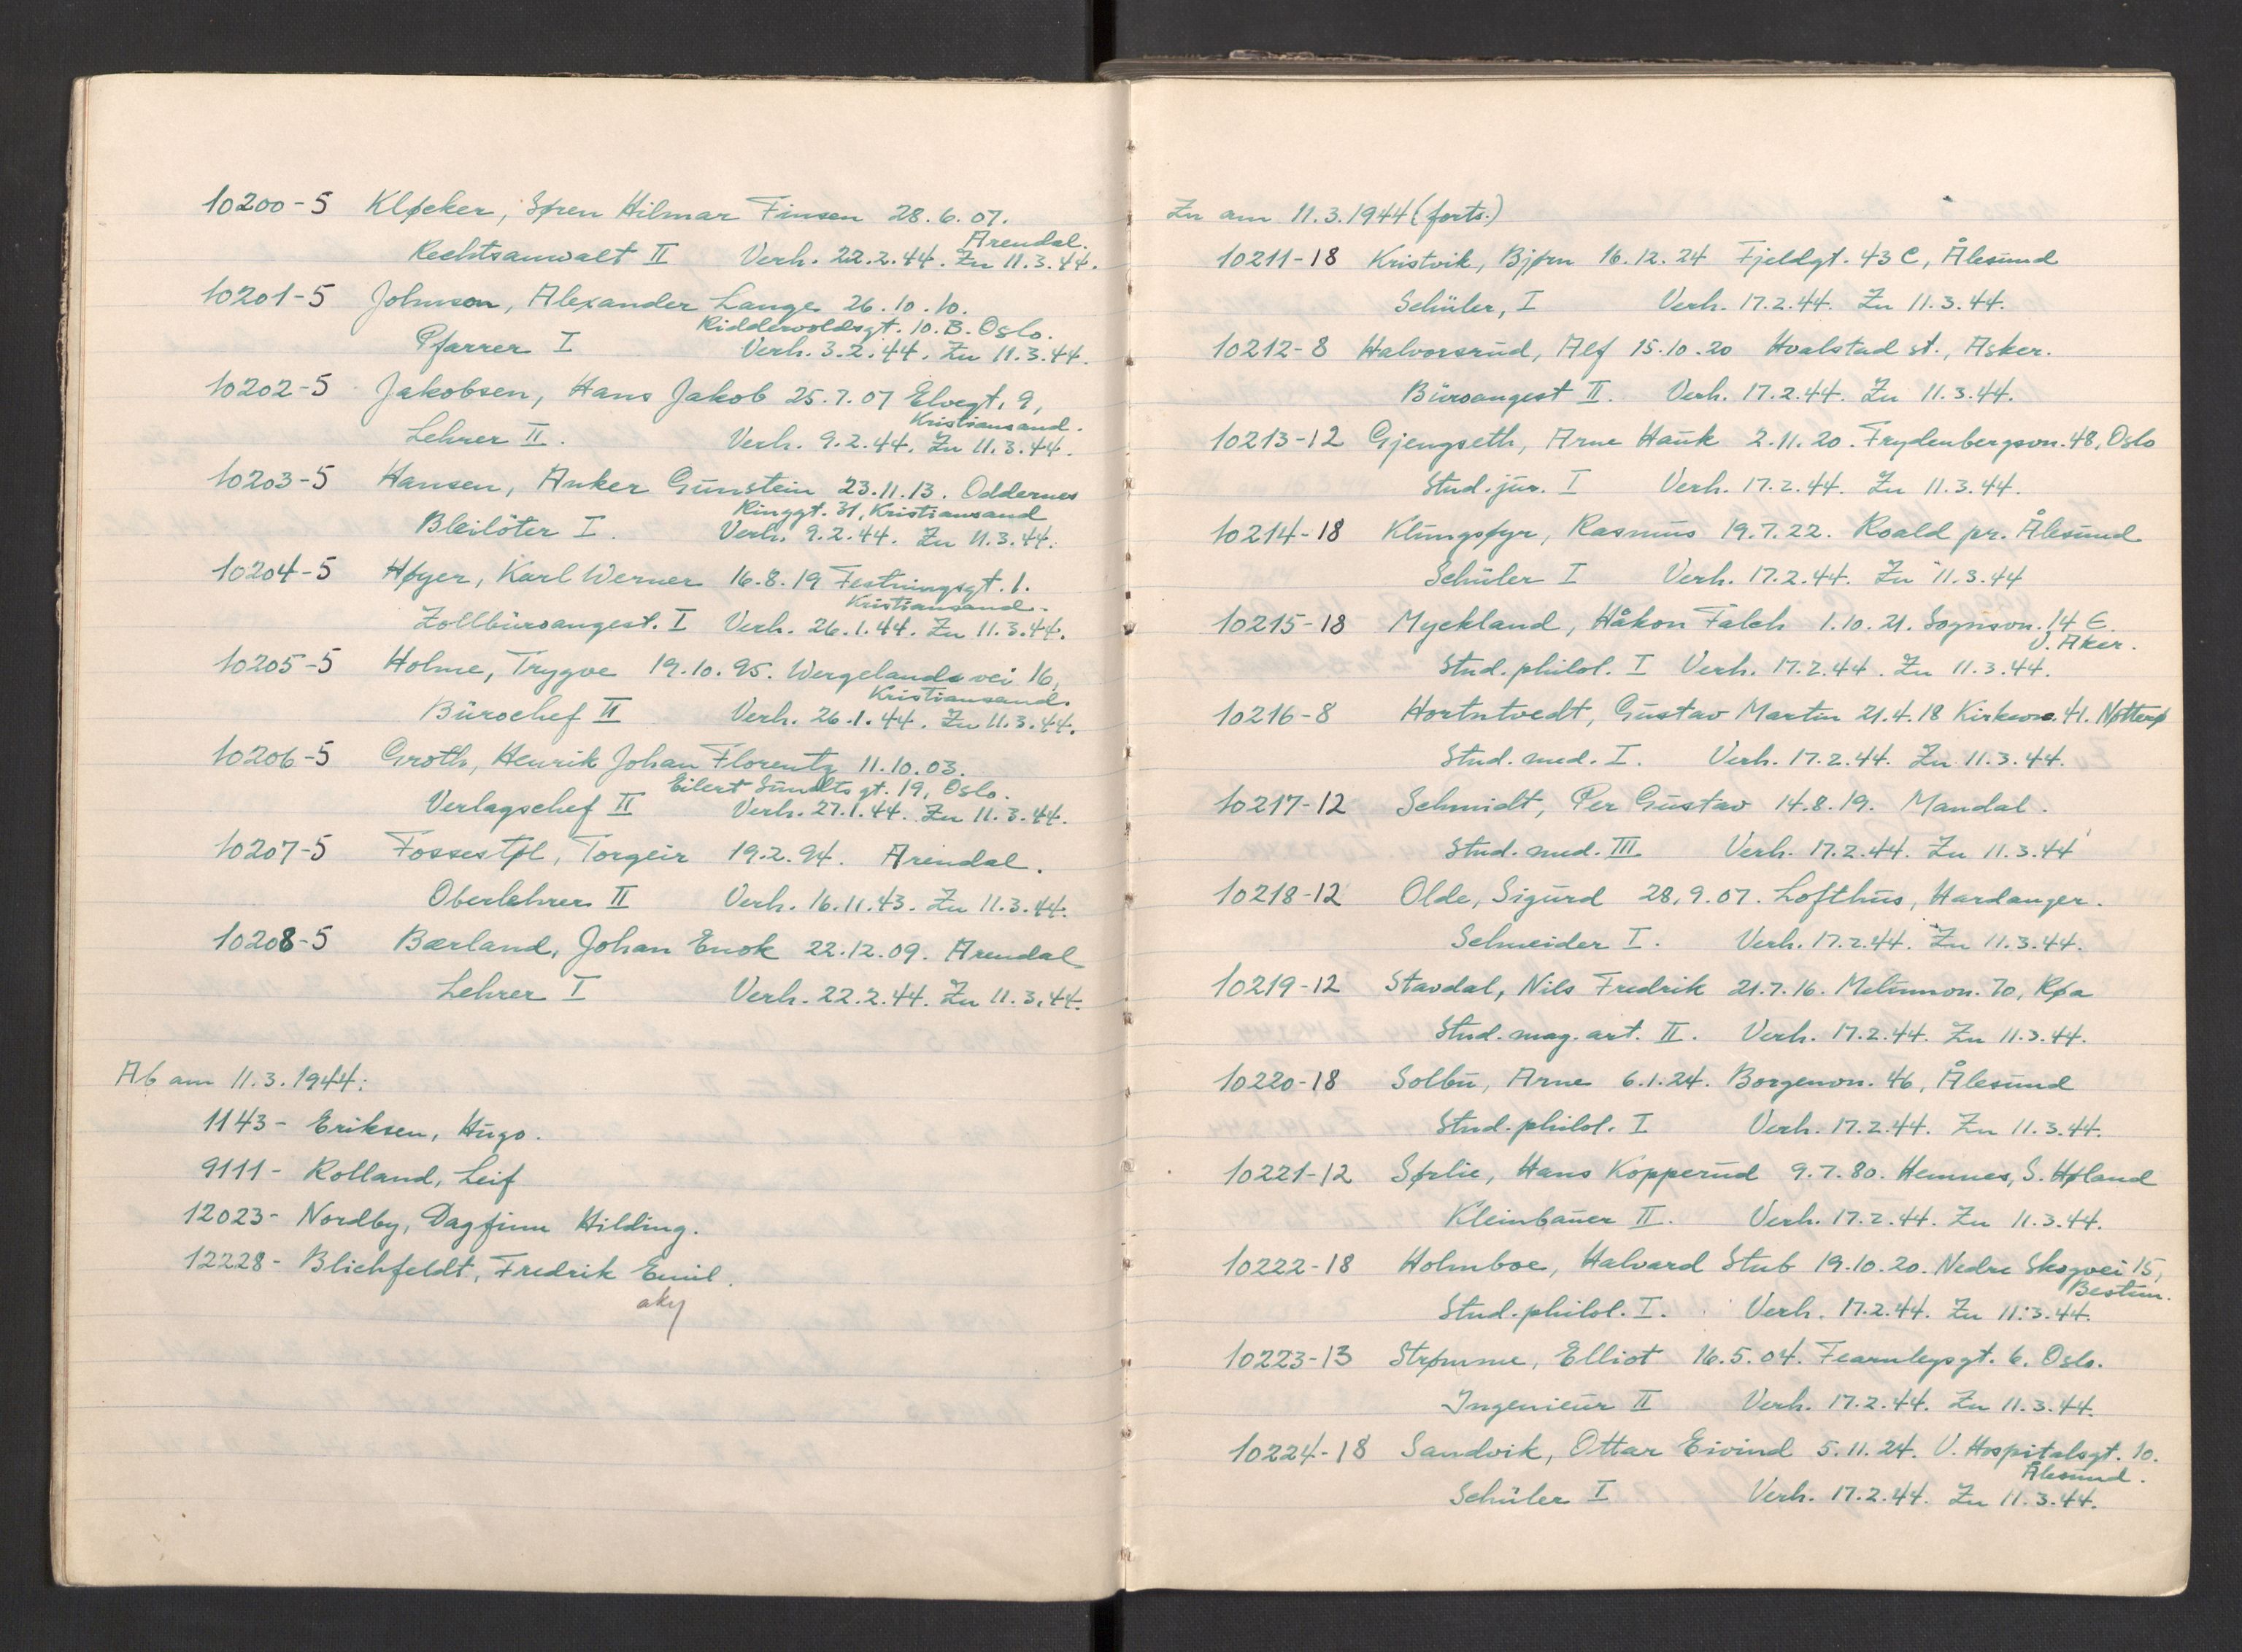 10200-5 Kløcker, Søren Hilmar Finsen 28.6.07.
Arendal.
Rechtsanwalt II Verh. 22.2.44. Zu 11.3.44.
10201-5 Johnson, Alexander Lange 26.10.10.
Riddervoldsgt. 10.B. Oslo.
Pfarrer I Verh. 3.2.44. Zu 11.3.44.
10202-5 Jakobsen, Hans Jakob 25.7.07 Elvegt. 9,
Kristiansand.
Lehrer II. Verh. 9.2.44. Zu 11.3.44.
10203-5 Hansen, Anker Gŭnstein 23.11.13. Oddernes
Ringgt. 31, Kristiansand
Bleilöter I. Verh. 9.2.44. Zu 11.3.44.
10204-5 Høyer, Karl Werner 16.8.19 Festningsgt. 1.
Kristiansand.
Zollbüroangest. I Verh. 26.1.44. Zu 11.3.44.
10205-5 Holme, Trygve 19.10.95. Wergelands vei 16,
Kristiansand.
Bürochef II Verh. 26.1.44. Zu 11.3.44.
10206-5 Groth, Henrik Johan Florentz 11.10.03.
Eilert Sŭndts gt. 19, Oslo.
Verlagschef II Verh. 27.1.44. Zu 11.3.44.
10207-5 Fossestøl, Torgeir 19.2.94. Arendal.
Oberlehrer II Verh. 16.11.43. Zu 11.3.44.
10208-5 Bærland, Johan Enok 22.12.09. Arendal
Lehrer I Verh. 22.2.44. Zu 11.3.44.
Ab am 11.3.1944:
1143- Eriksen, Hŭgo.
9111- Rolland, Leif
12023- Nordby, Dagfinn Hilding.
12228- Blichfeldt, Fredrik Emil.
Zu am 11.3.1944 (forts.)
10211-18 Kristvik, Bjørn 16.12.24 Fjeldgt. 43 C, Ålesŭnd
Schüler, I Verh. 17.2.44. Zu 11.3.44.
10212-8 Halvorsrŭd, Alf 15.10.20 Hvalstad st., Asker.
Büroangest II. Verh. 17.2.44. Zu 11.3.44.
10213-12 Gjengseth, Arne Haŭk 2.11.20. Frydenbergsvn. 48, Oslo
Stud. jŭr. I Verh. 17.2.44. Zu 11.3.44.
10214-18 Klŭngsøyr, Rasmŭs 19.7.22. Roald pr. Ålesŭnd
Schüler I Verh. 17.2.44. Zu 11.3.44
10215-18 Myckland, Håkon Falch 1.10.21. Sognsvn. 14 E.
V. Aker.
Stud. philol. I Verh. 17.2.44. Zu 11.3.44.
10216-8 Hortntvedt, Gŭstav Martin 21.4.18 Kirkevn. 41. Nøtterø
Stud. med. I. Verh. 17.2.44. Zu 11.3.44.
10217-12 Schmidt, Per Gŭstav 14.8.19. Mandal.
Stud. med. III Verh. 17.2.44. Zu 11.3.44
10218-12 Olde, Sigŭrd 28.9.07. Lofthŭs, Hardanger.
Schneider I. Verh. 17.2.44. Zu 11.3.44.
10219-12 Stavdal, Nils Fredrik 21.7.16. Melŭmvn. 70, Røa
Stud. mag. art. II. Verh. 17.2.44. Zu 11.3.44.
10220-18 Solbŭ, Arne 6.1.24. Borgenvn. 46, Ålesŭnd
Stud. philol. I Verh. 17.2.44. Zu 11.3.44.
10221-12 Sørlie, Hans Kopperŭd 9.7.80. Hemnes, S. Høland
Kleinbaŭer II. Verh. 17.2.44. Zu 11.3.44.
10222-18 Holmboe, Halvard Stub 19.10.20. Nedre Skogvei 15,
Bestŭm.
Stud. philol. I. Verh. 17.2.44. Zu 11.3.44.
10223-13 Strømme, Elliot 16.5.04. Fearnleysgt. 6. Oslo.
Ingenieŭr II Verh. 17.2.44. Zu 11.3.44.
10224-18 Sandvik, Ottar Eivind 5.11.24. V. Hospitalsgt. 10.
Ålesŭnd.
Schüler I Verh. 17.2.44. Zu 11.3.44.